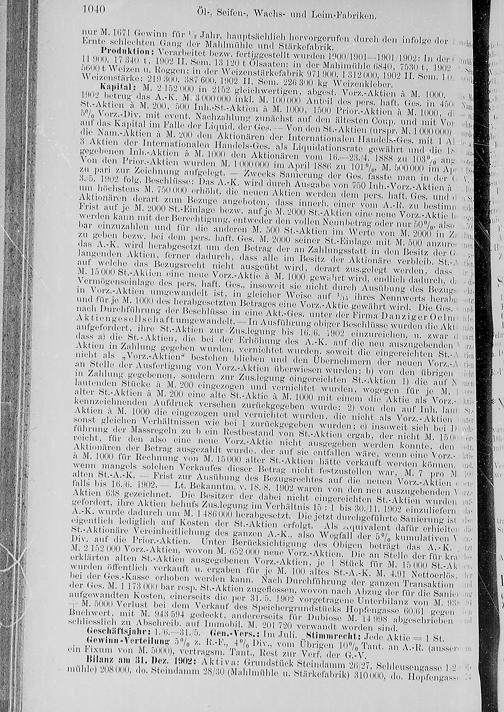 1040
Öl-, Seifen-, Wachs- und Leim-Fabriken.
nur M. 1671 Gewinn für 1/2 Jahr, hauptsächlich hervorgerufen durch den infolge der
Ernte schlechten Gang der Mahlmühle und Stärkefabrik.
Produktion: Verarbeitet bezw. fertiggestellt wurden 1900/1901—1901/1902: In der
11 900, 17 340 t, 1902 II. Sem. 13 120 t Ölsaaten; in der Mahlmühle 6840, 7530 t, 1902
5600 t Weizen u. Roggen; in der Weizenstärkefabrik 971 900, 1 312 000, 1902 II. Sem.
Weizenstärke: 219 300, 387 600, 1902 II. Sem. 226 300 kg Weizenkleber.
Kapital: M. 2 152 000 in 2152 gleichwertigen, abgest. Vorz.-Aktien à M. 1000.
1902 betrug das A.-K. M. 3 000 000 inkl. M. 100 000 Anteil des pers. haft. Ges. in 450
St.-Aktien à M. 200, 500 Inh.-St.-Aktien à M. 1000, 1500 Prior.-Aktien à M. 1000,
5% Vorz.-Div. mit event. Nachzahlung zunächst auf den ältesten Coup. und mit Vor
auf das Kapital im Falle der Liquid. der Ges. — Von den St.-Aktien (urspr. M. 1 000 000)
die Nam.-Aktien à M. 200 den Aktionären der Internationalen Handels-Ges. mit 1 Al
3 Aktien der Internationalen Handels-Ges. als Liquidationsrate gewährt und die
gegebenen Inh.-Aktien à M. 1000 den Aktionären vom 16.—23./4. 1888 zu 103% ang
Von den Prior.-Aktien wurden M. 1 000 000 im April 1886 zu 101%, M. 500 000 im Ap
zu pari zur Zeichnung aufgelegt. — Zwecks Sanierung der Ges. fasste man in der
3./5. 1902 folg. Beschlüsse: Das A.-K. wird durch Ausgabe von 750 Inh.-Vorz.-Aktien à
um höchstens M. 750 000 erhöht, die neuen Aktien werden dem pers. haft. Ges. und
Aktionären derart zum Bezuge angeboten, dass innerh. einer vom A.-R. zu bestimm
Frist auf je M. 2000 St.-Einlage bezw. auf je M. 2000 St.-Aktien eine neue Vorz.-Aktie
werden kann mit der Berechtigung, entweder den vollen Nennbetrag oder nur 50% also
bar einzuzahlen und für die anderen M. 500 St.-Aktien im Werte von M. 2000 in Z
zu geben bezw. bei dem pers. haft. Ges. M. 2000 seiner St.-Einlage mit M. 500 anzure
das A.-K. wird herabgesetzt um den Betrag der an Zahlungsstatt in den Besitz der G
langenden Aktien, ferner dadurch, dass alle im Besitz der Aktionäre verbleib. St.-
auf welche das Bezugsrecht nicht ausgeübt wird, derart zus.gelegt werden, dass
M. 15 000 St.-Aktien eine neue Vorz.-Aktie à M. 1000 gewährt wird, endlich dadurch, d
Vermögenseinlage des pers. haft. Ges., insoweit sie nicht durch Ausübung des Bezugs
in Vorz.-Aktien umgewandelt ist, in gleicher Weise auf 1/15 ihres Nennwerts herab
und für je M. 1000 des herabgesetzten Betrages eine Vorz.-Aktie gewährt wird. Die Ges.
nach Durchführung der Beschlüsse in eine Akt.-Ges. unter der Firma Danziger Oelm
Aktiengesellschaft umgewandelt. — In Ausführung obiger Beschlüsse wurden die Akt
aufgefordert, ihre St.-Aktien zur Zuslegung bis 16./6. 1902 einzureichen, u. zwar
dass a) die St.-Aktien, die bei der Erhöhung des A.-K. auf die neu auszugebenden
Aktien in Zahlung gegeben wurden, vernichtet wurden, soweit die eingereichten St.-A
nicht als „Vorz.-Aktien“ bestehen blieben und den Übernehmern der neuen Vorz.-A
an Stelle der Ausfertigung von Vorz.-Aktien überwiesen wurden; b) von den übrigen
in Zahlung gegebenen, sondern zur Zuslegung eingereichten St.-Aktien 1) die auf N
lautenden Stücke à M. 200 eingezogen und vernichtet wurden, wogegen für je M.
alter St.-Aktien à M. 200 eine alte St.-Aktie à M. 1000 mit einem die Aktie als Vorz.-
kennzeichnenden Aufdruck versehen zurückgegeben wurde; 2) von den auf Inh. laut
Aktien à M. 1000 die eingezogen und vernichtet wurden, die nicht als Vorz.-Aktien
sonst gleichen Verhältnissen wie bei 1 zurückgegeben wurden; c) insoweit sich bei D
führung der Massregeln zu b ein Restbestand von St.-Aktien ergab, der nicht M. 15 0
reicht, für den also eine neue Vorz.-Aktie nicht ausgegeben werden konnte, den
Aktionären der Betrag ausgezahlt wurde, der auf sie entfallen wäre, wenn eine Vorz.-
à M. 1000 für Rechnung von M. 15 000 alter St.-Aktien hätte verkauft werden können,
wenn mangels solchen Verkaufes dieser Betrag nicht festzustellen war, M. 7 pro M
alten St.-A.-K. — Frist zur Ausübung des Bezugsrechtes auf die neuen Vorz.-Aktien
falls bis 16./6. 1902. — Lt. Bekanntm. v. 18./8. 1902 waren von den neu auszugebenden V
Aktien 638 gezeichnet. Die Besitzer der dabei nicht eingereichten St.-Aktien wurden
gefordert, ihre Aktien behufs Zuslegung im Verhältnis 15 : 1 bis 30./11. 1902 einzuliefern
A.-K. wurde dadurch um M. 1 486 000 herabgesetzt. Die jetzt durchgeführte Sanierung ist
eigentlich lediglich auf Kosten der St.-Aktien erfolgt. Als Äquivalent dafür erhielten
St.-Aktionäre Vereinheitlichung des ganzen A.-K., also Wegfall der 5% kumulativen V
Div. auf die Prior.-Aktien. Unter Berücksichtigung des Obigen beträgt das A.-K.
M. 2 152 000 Vorz.-Aktien, wovon M. 652 000 neue Vorz.-Aktien. Die an Stelle der für kra
erklärten alten St.-Aktien ausgegebenen Vorz.-Aktien, je 1 Stück für M. 15 000 St.-Ak
wurden öffentlich verkauft u. ergaben für je M. 100 altes St.-A.-K. M. 4.91 Nettoerlös,
bei der Ges.-Kasse erhoben werden kann. Nach Durchführung der ganzen Transaktion
der Ges. M. 1 173 000 bar resp. St.-Aktien zugeflossen, wovon nach Abzug der für die Sanier
aufgewandten Kosten, einerseits die per 31./5. 1902 vorgetragene Unterbilanz von M. 93
+ M. 5000 Verlust bei dem Verkauf des Speichergrundstücks Hopfengasse 60/61 gegen
Buchwert, mit M. 943 594 gedeckt, anderseits für Dubiose M. 14 998 abgeschrieben
schliesslich zu Abschreib. auf Immobil. M. 201 720 verwandt worden sind.
Geschäftsjahr: 1./6.—31./5. Gen.-Vers.: Im Juli. Stimmrecht: Jede Aktie = 1 St.
Gewinn-Verteilung 5% z. R.-F., 4% Div., vom Übrigen 10% Tant. an A.-R. (ausser
ein Fixum von M. 5000), vertragsm. Tant., Rest zur Verf. der G.-V.
Bilanz am 31. Dez. 1902: Aktiva: Grundstück Steindamm 26/27, Schleusengasse 1,2
mühle) 208 000, do. Steindamm 28/30 (Mahlmühle u. Stärkefabrik) 310 000, do. Hopfengasse